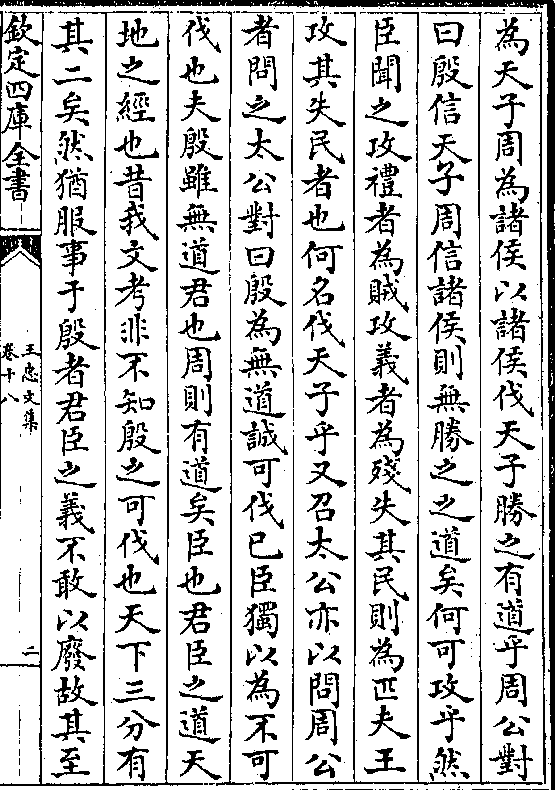 為天子周為諸侯以諸侯伐天子勝之有道乎周公對
曰殷信天子周信諸侯則無勝之之道矣何可攻乎然
臣聞之攻禮者為賊攻義者為殘失其民則為匹夫王
攻其失民者也何名伐天子乎又召太公亦以問周公
者問之太公對曰殷為無道誠可伐已臣獨以為不可
伐也夫殷雖無道君也周則有道矣臣也君臣之道天
地之經也昔我文考非不知殷之可伐也天下三分有
其二矣然猶服事于殷者君臣之義不敢以廢故其至
欽定四庫全書
王忠文集
卷十八
二